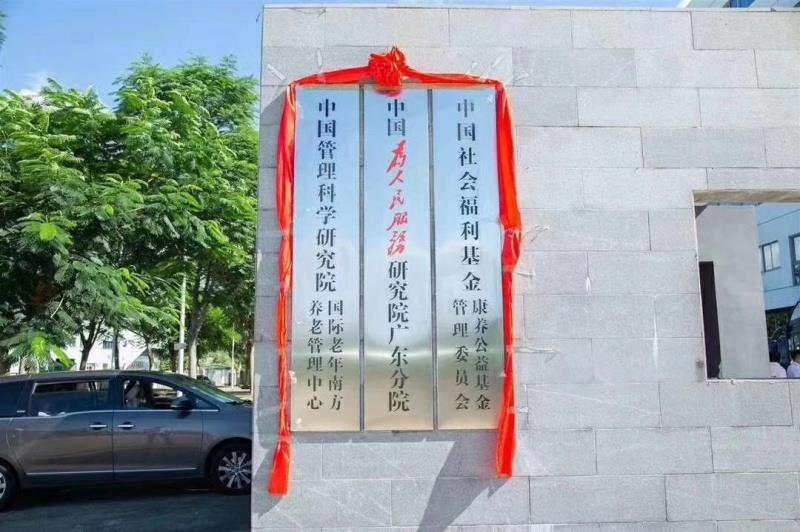 中国社会福利基金
康养公益基金
管理委员会
中国为人民服务研究院广东分院
中国管理科学研究院
国际老年南方
养老管理中心